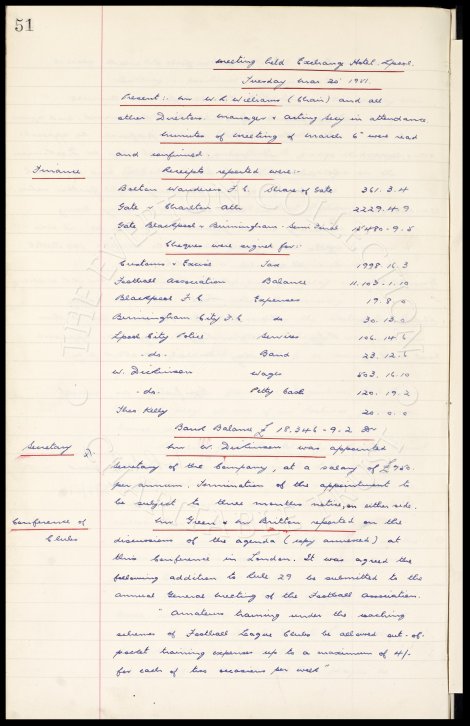 51
Meeting held Exchange Hotel. Lpool.
Tuesday Mar 20th 1951.
Present:- Mr W. R. Williams (Chair) and all
other Directors. Manager & Acting Secy in attendance
Minutes of Meeting of March 6th were read
and confirmed.
Finance Receipts reported were:-
Bolton Wanderers F.C. Share of Gate 361. 3. 4
Gate v Charlton Ath 2229. 4. 9
Gate Blackpool v Birmingham - Semi Final 15480 - 9. 6
Cheques were signed for:-
Customs & Excise Tax 1998. 16. 3
Football Association Balance 11.103 - 1. 10
Blackpool F.C. Expenses 19. 8. 0
Birmingham City F.C. do 30. 13. 0
Lpool City Police Services 106. 14. 6
- do. - Band 23. 12. 6
W. Dickinson Wages 503. 16. 10
- do. - Petty Cash 120. 19. 2
Theo Kelly 20. 0. 0
Bank Balance £ 18,346 - 9. 2 Dr
Secretary Mr W. Dickinson was appointed
Secretary of the Company, at a salary of £750.
per annum. Termination of the appointment to
be subject to three months notice, on either side.
Conference of Mr Green & Mr Britton reported on the
Clubs discussions of the agenda (copy annexed) at
this Conference in London. It was agreed the
following addition to Rule 29 be submitted to the
Annual General Meeting of the Football Association.
"Amateurs training under the coaching
schemes of Football League Clubs be allowed out-of-
pocket training expenses up to a maximum of 4/-
for each of two occasions per week"
THE EVERTON COLLECTION